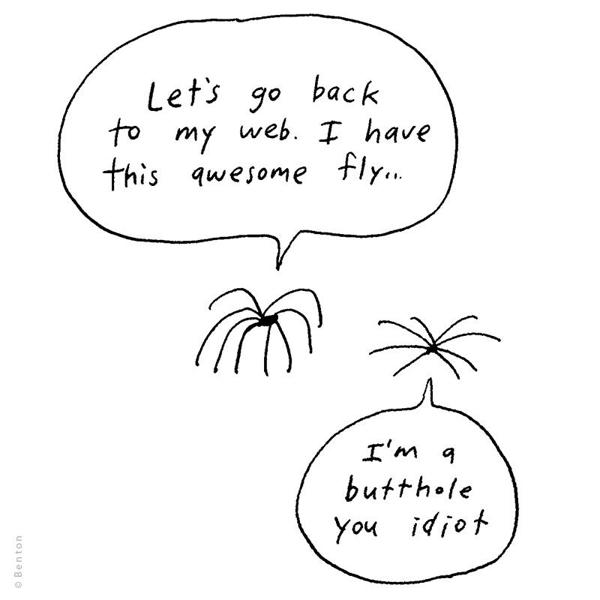 Let's go back
to my web. I have
this awesome fly...
I'm a
butthole
you idiot
© Benton